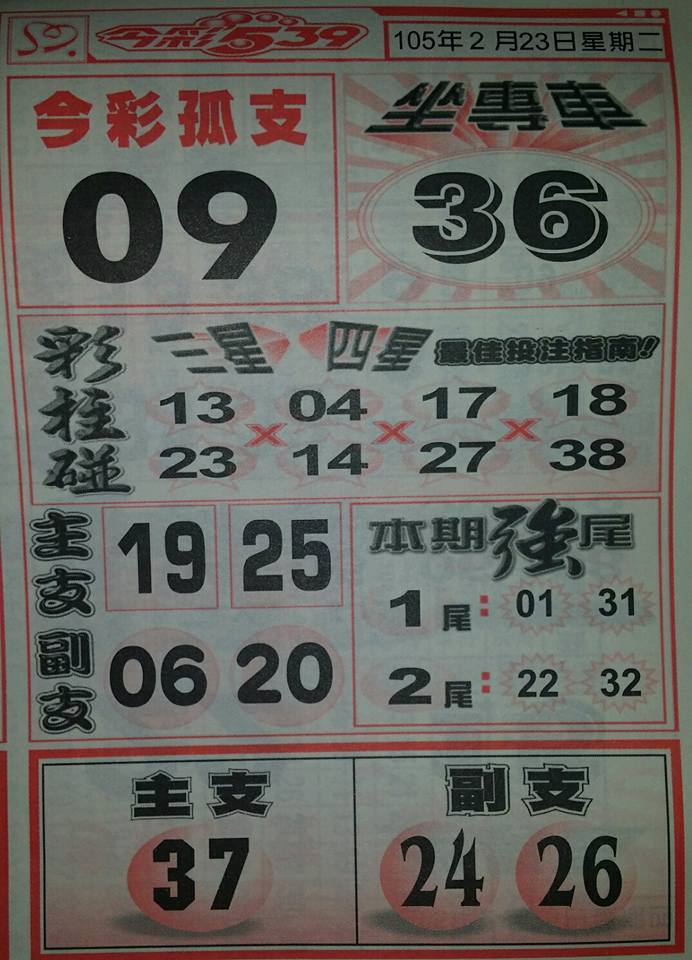 今彩539
105年2月23日星期二
今彩孤支
09
坐專車
36
彩柱碰
三星 四星 最佳投注指南!!
13 04 17 18
x x x
23 14 27 38
主支
19 25
副支
06 20
本期強尾
1尾: 01 31
2尾: 22 32
主支
37
副支
24 26